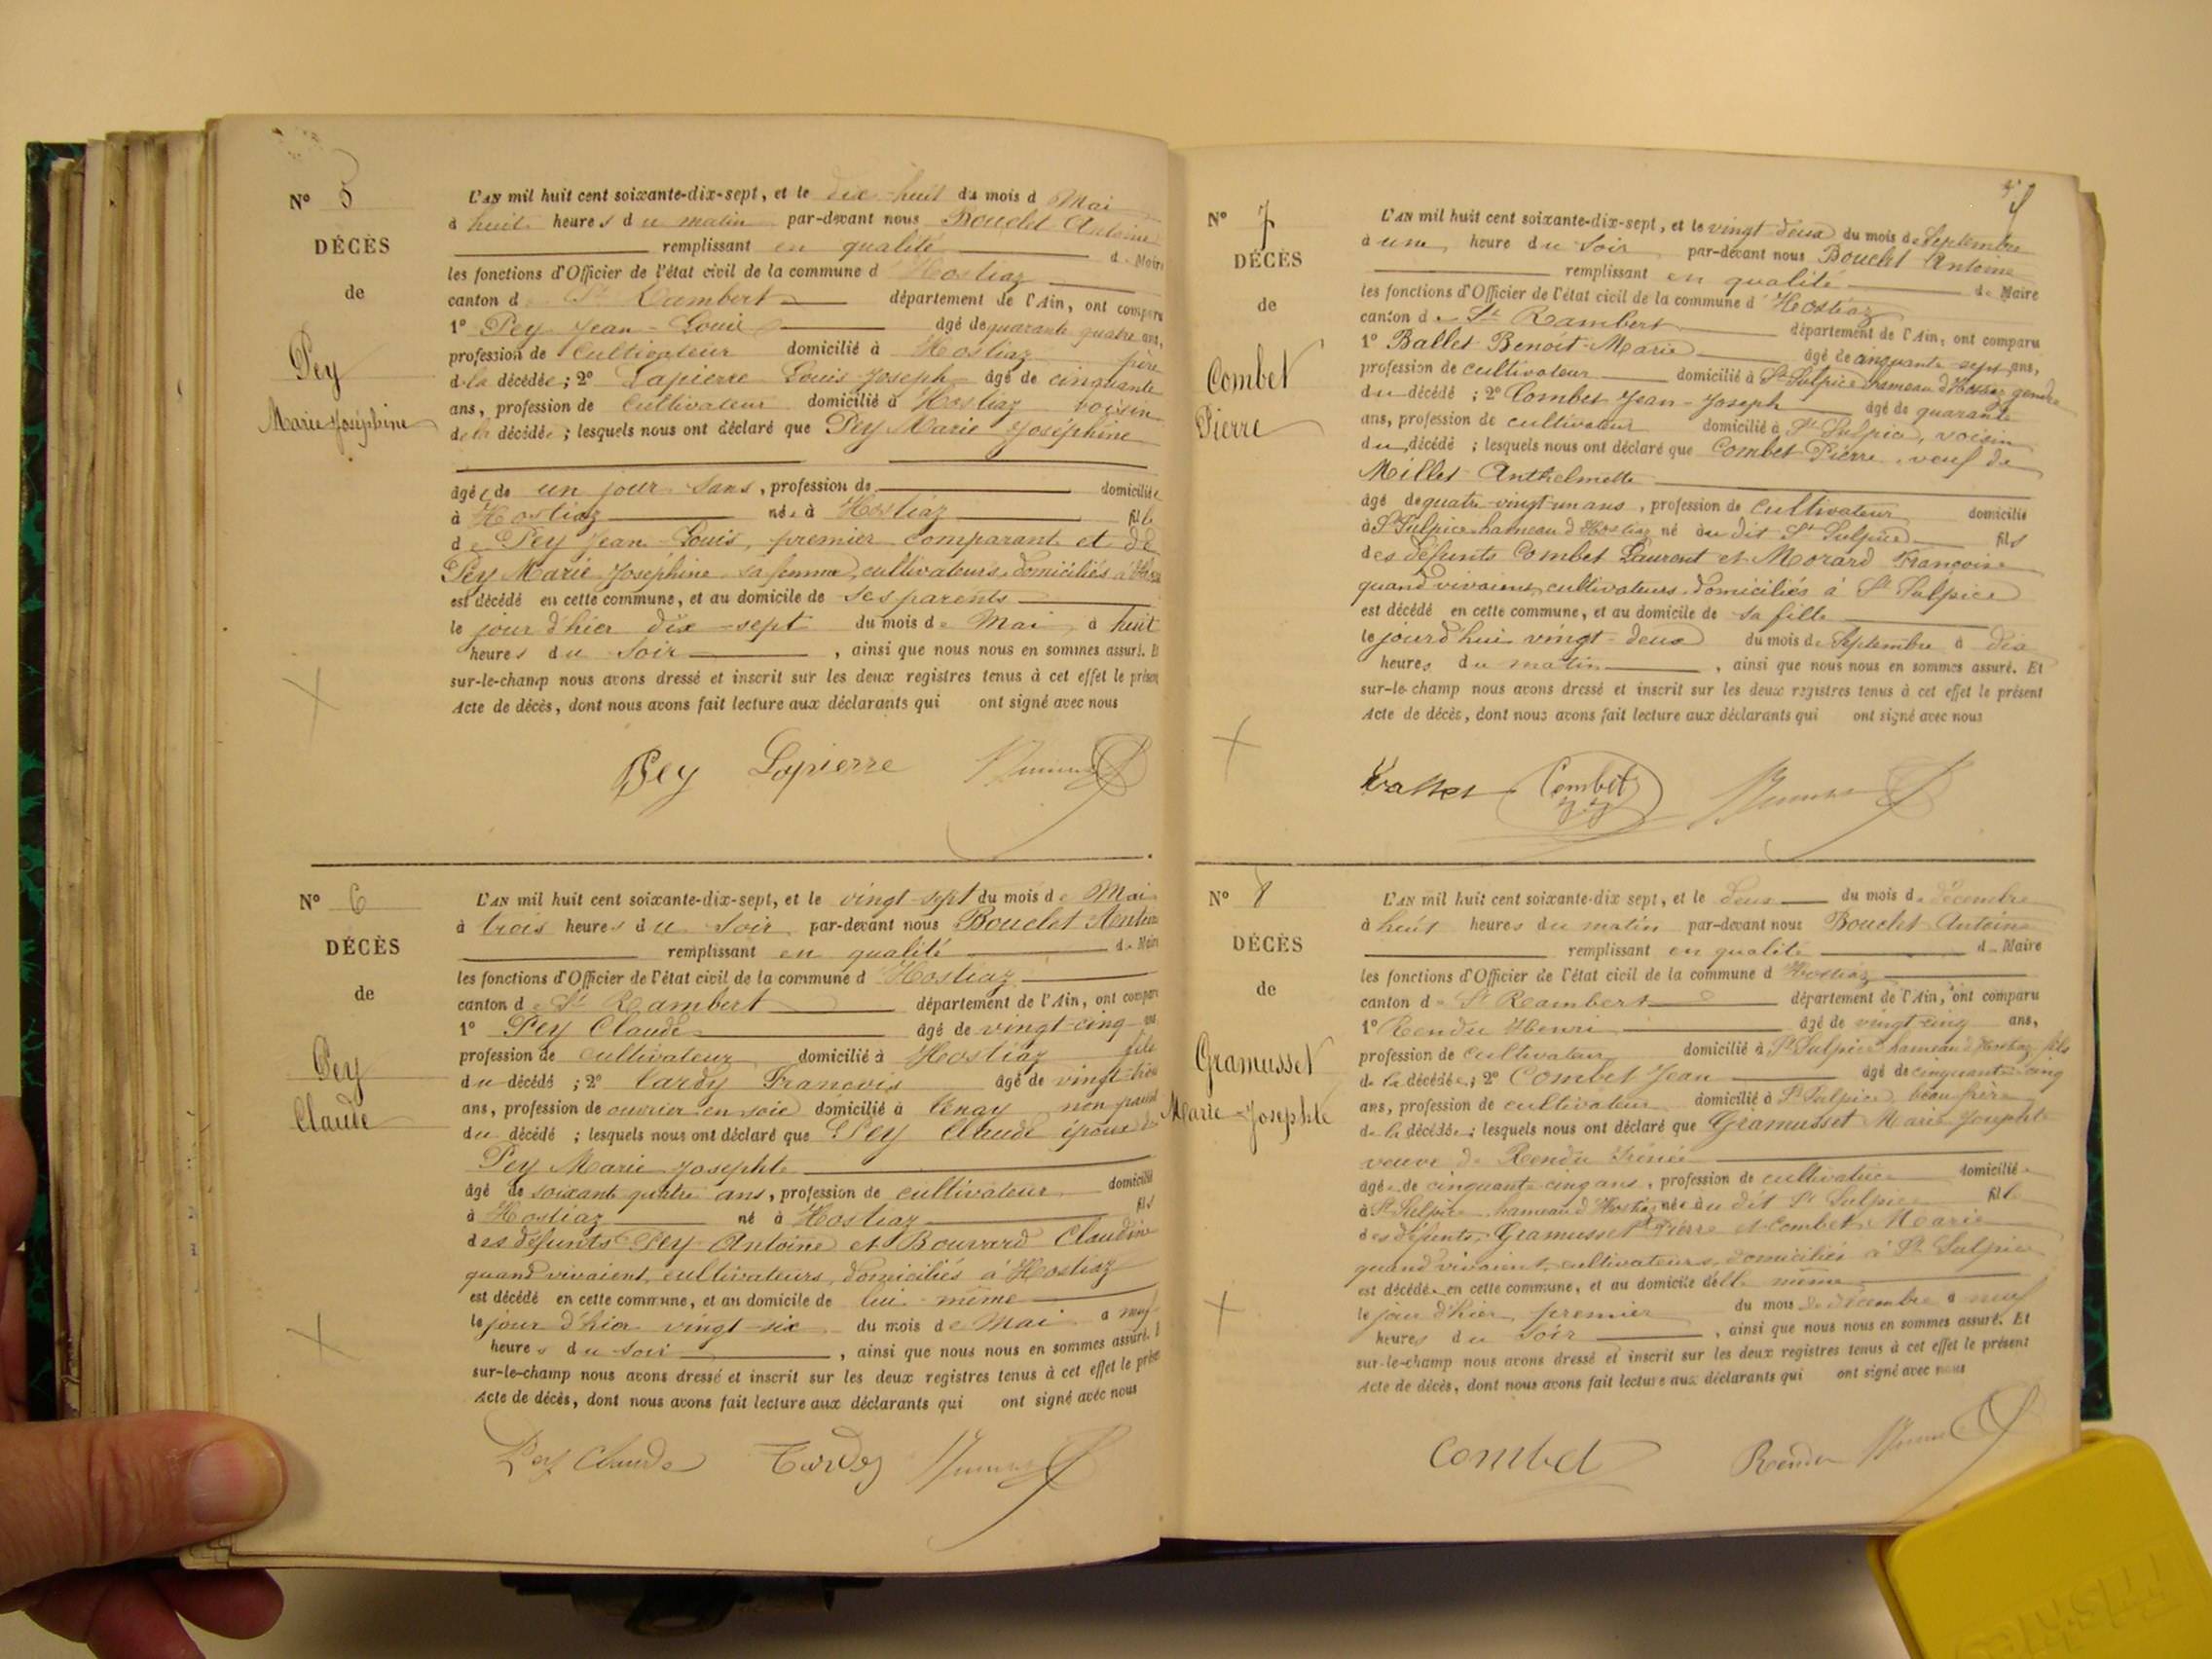 N° 5
DÉCÈS
de
Pey
Marie Joséphine
L'AN mil huit cent soixante-dix-sept, et le dix-huit du mois d Mai
à huit heures du matin par-devant nous Bouclet Antoine
remplissant en qualité de Maire
les fonctions d'Officier de l'état civil de la commune d Hostiaz
canton de St Rambert département de l'Ain, ont comparu
1° Pey Jean-Louis âgé de quarante quatre ans,
profession de Cultivateur domicilié à Hostiaz père
de la décédée ; 2° Lapierre Louis Joseph âgé de cinquante
ans, profession de Cultivateur domicilié à Hostiaz voisin
de la décédée ; lesquels nous ont déclaré que Pey Marie Joséphine
âgée de un jour sans, profession de domiciliée
à Hostiaz née à Hostiaz fille
de Pey Jean Louis, premier comparant et de
Pey Marie Joséphine sa femme, cultivateurs, domiciliés à
est décédé en cette commune, et au domicile de ses parents
le jour d'hier dix-sept du mois de Mai à huit
heures du soir , ainsi que nous nous en sommes assuré. E
sur-le-champ nous avons dressé et inscrit sur les deux registres tenus à cet effet le présen
Acte de décès, dont nous avons fait lecture aux déclarants qui ont signé avec nous
Pey Lapierre
N° 6
DÉCÈS
de
Pey
Claude
L'AN mil huit cent soixante-dix-sept, et le vingt-sept du mois de Mai
à trois heures du soir par-devant nous Bouclet Antoine
remplissant en qualité de Maire
les fonctions d'Officier de l'état civil de la commune d Hostiaz
canton de St Rambert département de l'Ain, ont compar
1° Pey Claude âgé de vingt-cinq ans
profession de cultivateur domicilié à Hostiaz fils
du décédé ; 2° Tardy François âgé de vingt
ans, profession de ouvrier en soie domicilié à Tenay non parent
du décédé ; lesquels nous ont déclaré que Pey Claude époux de
Pey Marie Josephte
âgé de soixante quatre ans, profession de cultivateur domicilié
à Hostiaz né à Hostiaz fils
des défunts Pey Antoine et Bouvard Claudine
quand vivaient, cultivateurs, domiciliés à Hostiaz
est décédé en cette commune, et au domicile de lui-même
le jour d'hier vingt-six du mois de Mai à neuf
heures du soir , ainsi que nous nous en sommes assuré. E
sur-le-champ nous avons dressé et inscrit sur les deux registres tenus à cet effet le prése
Acte de décès, dont nous avons fait lecture aux déclarants qui ont signé avec nous
Pey Claude Tardy
N° 7
DÉCÈS
de
Combet
Pierre
L'AN mil huit cent soixante-dix-sept, et le vingt deux du mois de Septembre
à une heure du soir par-devant nous Bouclet Antoine
remplissant en qualité de Maire
les fonctions d'Officier de l'état civil de la commune d Hostiaz
canton de St Rambert département de l'Ain, ont comparu
1° Ballet Benoit-Marie âgé de cinquante sept ans,
profession de cultivateur domicilié à St Sulpice hameau d'Hostiaz gendre
du décédé ; 2° Combet Jean-Joseph âgé de quarante
ans, profession de cultivateur domicilié à St Sulpice, voisin
du décédé ; lesquels nous ont déclaré que Combet Pierre, veuf de
Millet Anthelmette
âgé de quatre-vingt-un ans, profession de cultivateur domicilié
à St Sulpice hameau d Hostiaz né au dit St Sulpice fils
des défunts Combet Laurent et Morard Françoise
quand vivaient, cultivateurs, domiciliés à St Sulpice
est décédé en cette commune, et au domicile de sa fille
le jourd'hui vingt-deux du mois de Septembre à dix
heures du matin , ainsi que nous nous en sommes assuré. Et
sur-le-champ nous avons dressé et inscrit sur les deux registres tenus à cet effet le présent
Acte de décès, dont nous avons fait lecture aux déclarants qui ont signé avec nous
Ballet Combet
N° 8
DÉCÈS
de
Gramusset
Marie-Josephte
L'AN mil huit cent soixante-dix sept, et le deux du mois de décembre
à huit heures du matin par-devant nous Bouclet Antoine
remplissant en qualité de Maire
les fonctions d'Officier de l'état civil de la commune d Hostiaz
canton de St Rambert département de l'Ain, ont comparu
1° Rendu Henri âgé de vingt-cinq ans,
profession de cultivateur domicilié à St Sulpice hameau d'Hostiaz fils
de la décédée ; 2° Combet Jean âgé de cinquante-cinq
ans, profession de cultivateur domicilié à St Sulpice, beau frère
de la décédée ; lesquels nous ont déclaré que Gramusset Marie Josephte
veuve de Rendu Irénée
âgée de cinquante-cinq ans, profession de cultivatrice domiciliée
à St Sulpice hameau d Hostiaz née au dit St Sulpice fille
des défunts, Gramusset Pierre et Combet Marie
quand vivaient, cultivateurs, domiciliés à St Sulpice
est décédée en cette commune, et au domicile d'elle même
le jour d'hier premier du mois de décembre à neuf
heures du soir , ainsi que nous nous en sommes assuré. Et
sur-le-champ nous avons dressé et inscrit sur les deux registres tenus à cet effet le présent
Acte de décès, dont nous avons fait lecture aux déclarants qui ont signé avec nous
Combet Rendu